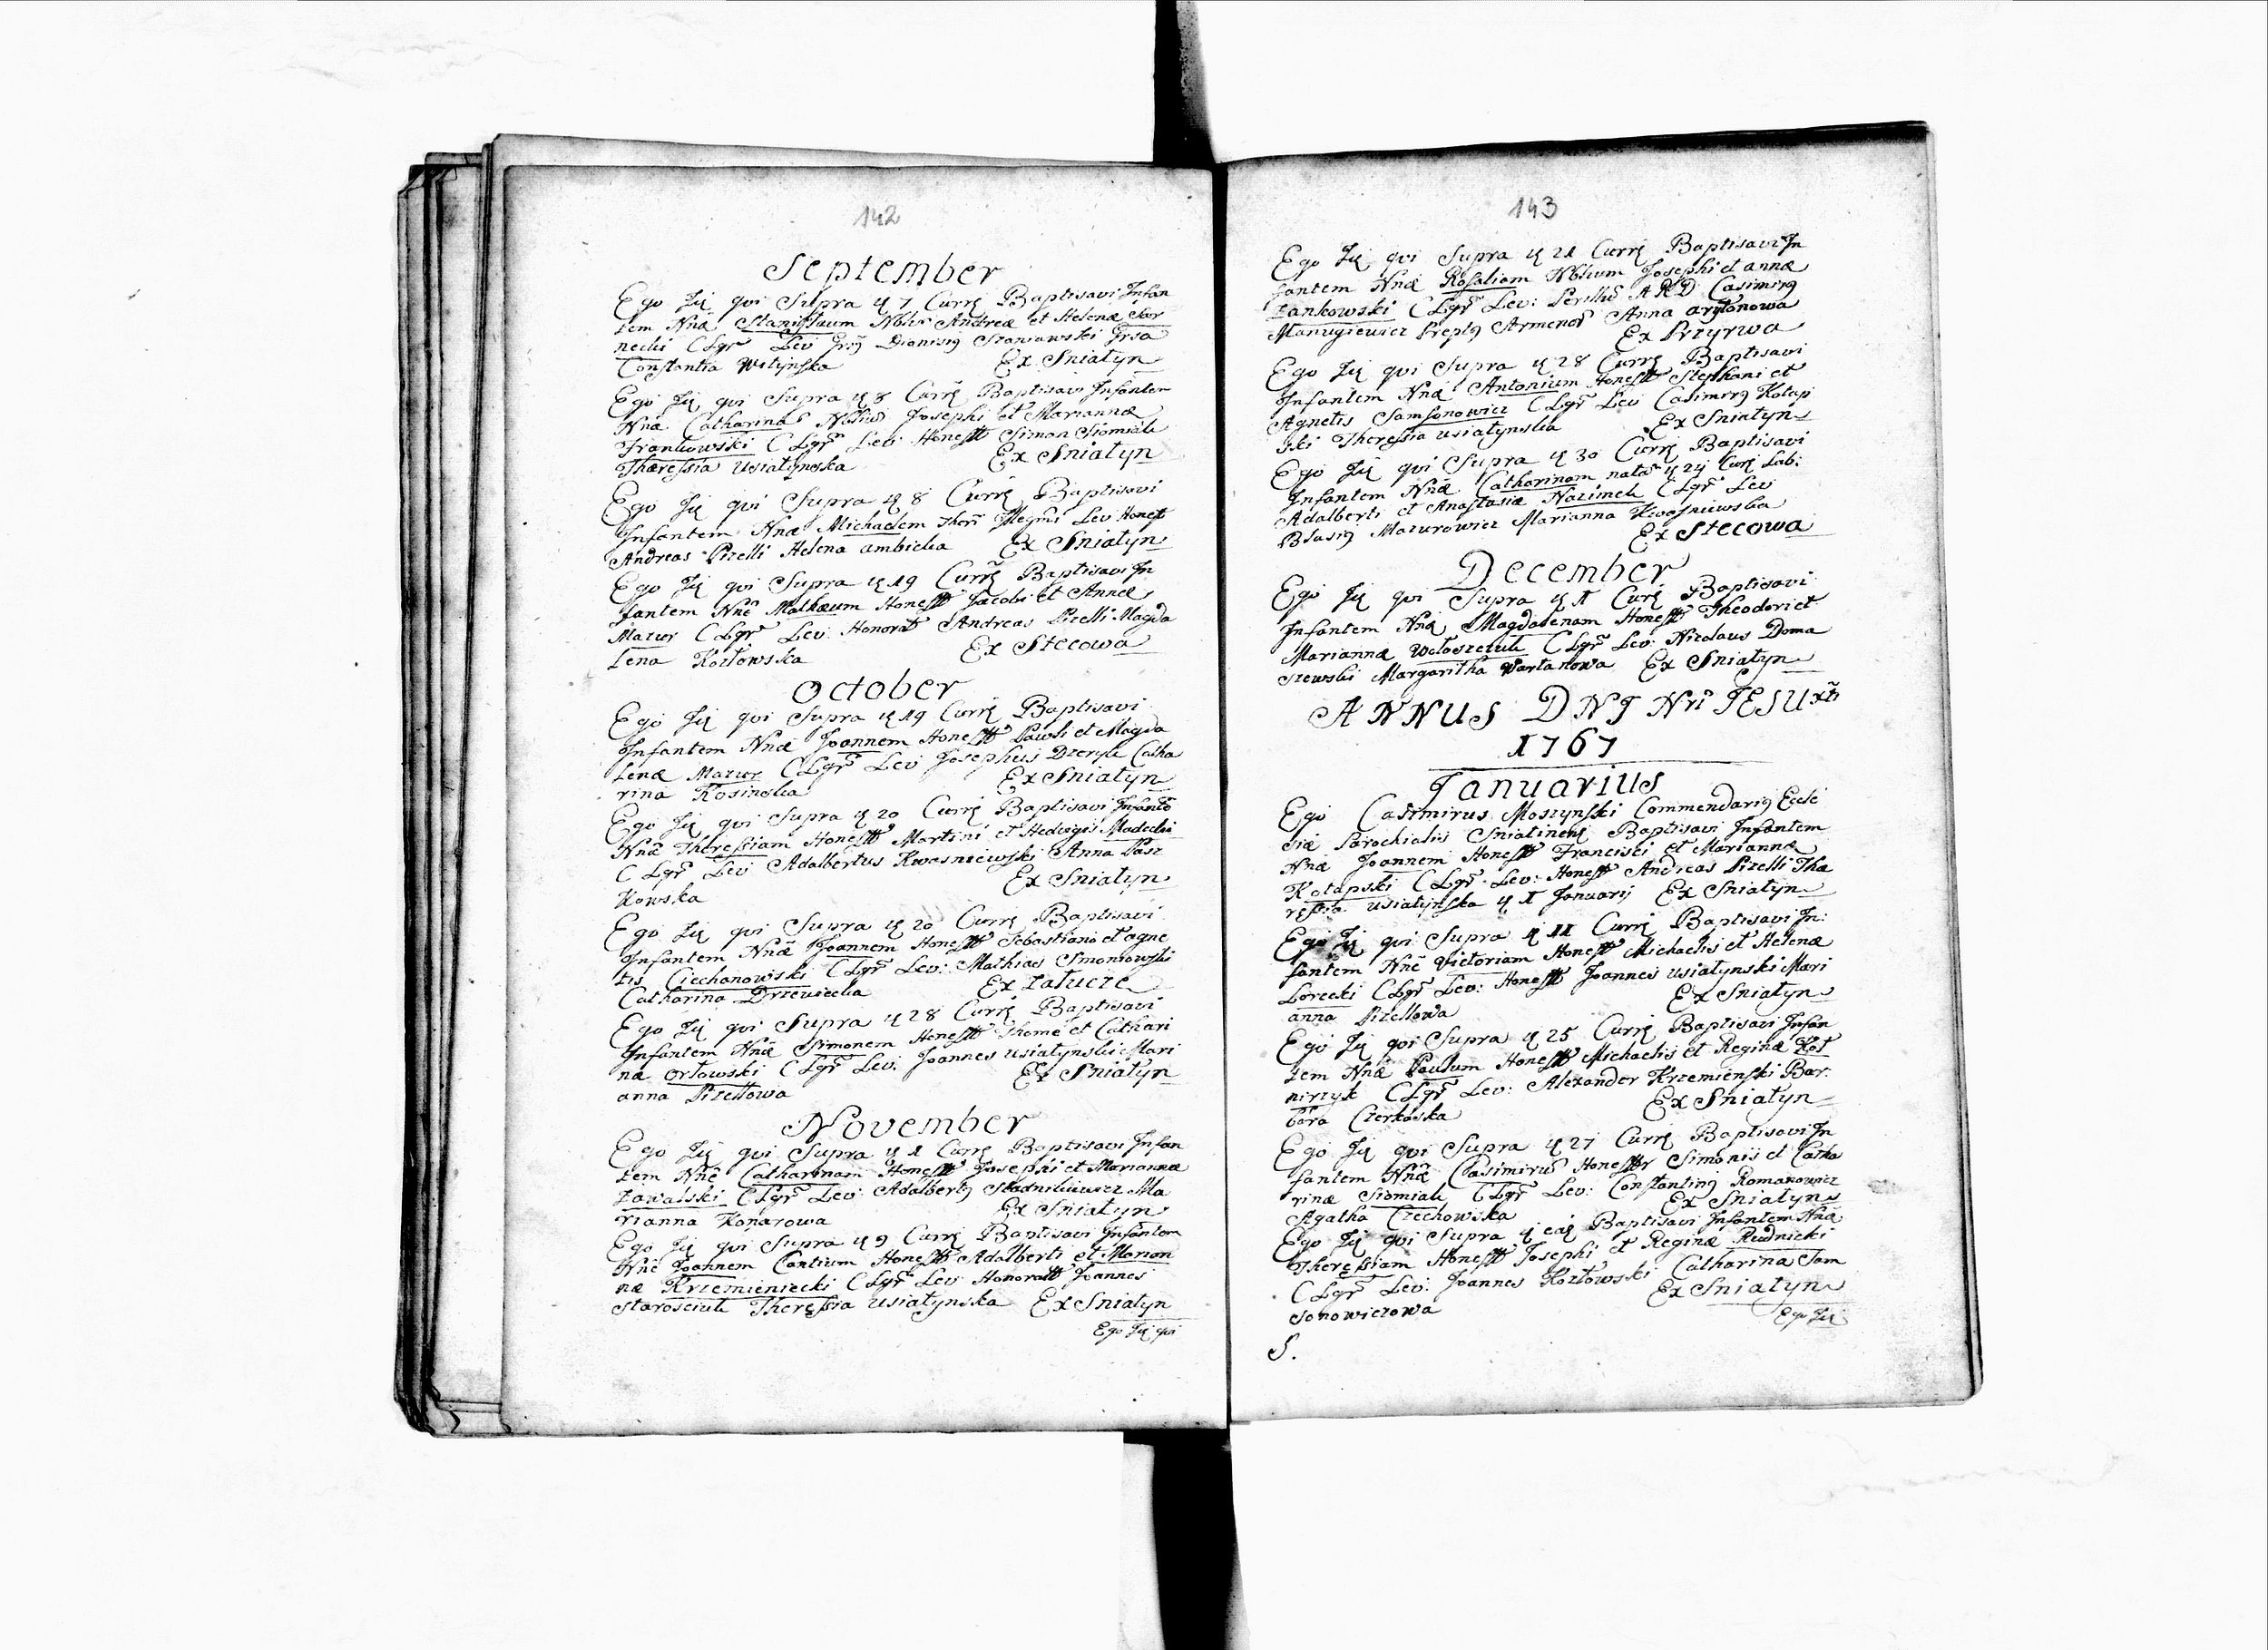 142
September
Ego Id̃ qui Supra d. 7 Curr̃ Baptisavi Infan
tem Nnẽ Stanislaum Nobl. Andreæ et Helenæ Sar
necki C Lgr̃ Lev Dionisi9 Staniawski
Constantia Witynska Ex Sniatyn
Ego Id̃ qui Supra d. 8 Curr̃ Baptisavi Infantem
Nnẽ Catharinã Nobiliũ Josephi et Mariannæ
Frankowski C Lgr̃ Lev: Honestt Simon Siomiak
Theressia Usiatynska Ex Sniatyn
Ego Id̃ qui Supra d. 8 Curr̃ Baptisavi
Infantem Nnẽ Michaelem Lev Honest
Andreas Pizelli Helena ambicka Ex Sniatyn
Ego Id̃ qui Supra d. 19 Curr̃ Baptisavi In
fantem Nnẽ Mathæum Honestt Jacobi et Annæ
Mazur C Lgr̃ Lev: Honorat Andreas Pizelli Magda
lena Kozłowska Ex Stecowa
October
Ego Id̃ qui Supra d. 19 Curr̃ Baptisavi
Infantem Nnẽ Joannem Honestt Pawli et Magda
lenæ Mazur C Lgr̃ Lev Josephus Dzeryk Catha
rina Kosinska Ex Sniatyn
Ego Id̃ qui Supra d. 20 Curr̃ Baptisavi Infantẽ
Nnẽ Theressiam Honestt Martini et Hedvigis Madecki
C Lgr̃ Lev Adalbertus Kwasniewski Anna Pasz
kowska Ex Sniatyn
Ego Id̃ qui Supra d. 20 Curr̃ Baptisavi
Infantem Nnẽ Joannem Honestt Sebastiani et agne
tis Ciechanowski C Lgr̃ Lev: Mathias Simoniowski
Catharina Drzewiecka Ex Załucze
Ego Id̃ qui Supra d. 28 Curr̃ Baptisavi
Infantem Nnẽ Simonem Honestt Thomẽ et Cathari
næ Orłowski C Lgr̃ Lev: Joannes Usiatynski Mari
anna Pizellowa Ex Sniatyn
November
Ego Id̃ qui Supra d. 1 Curr̃ Baptisavi Infan
tem Nnẽ Catharinam Honestt Josephi et Mariannæ
Zawalski C Lgr̃ Lev: Adalbert9 Ma
rianna Konarowa Ex Sniatyn
Ego Id̃ qui Supra d. 9 Curr̃ Baptisavi Infantem
Nnẽ Joannem Cantium Honestt Adalberti et Marian
næ Krzemieniecki C Lgr̃ Lev Honoratt Joannes
Starosciuk Theressia Usiatynska Ex Sniatyn
Ego Id̃ qui
143
Ego Id̃ qui Supra d. 21 Curr̃ Baptisavi In
fantem Nnẽ Rosaliam Nblium Josephi et annæ
Zankowski C Lgr̃ Lev: Perillũs A R D Casimir9
Manugiewicz Prept9 Armenor̃ Anna arytonowa
Ex Przyrwa
Ego Id̃ qui Supra d. 28 Curr̃ Baptisavi
Infantem Nnẽ Antonium Honestt Stephani et
Agnetis Samsonowicz C Lgr̃ Lev Casimir9 Kotap
ski Theressia Usiatynska Ex Sniatyn
Ego Id̃ qui Supra d. 30 Curr̃ Baptisavi
Infantem Nnẽ Catharinam natã d. 24 Curr̃ Lab:
Adalberti et Anastasiæ Nazimek C Lgr̃ Lev
Blasi9 Mazurowicz Marianna Kwasniewska
Ex Stecowa
December
Ego Id̃ qui Supra d. 1 Curr̃ Baptisavi
Infantem Nnẽ Magdalenam Honestt Theodori et
Mariannæ Wołoszczuk C Lgr̃ Lev: Nicolaus Doma
szewski Margaritha Vartanowa Ex Sniatyn
ANNUS DNI Nri IESU Xti
1767
Januarius
Ego Casimirus Moszynski Commendari9 Eccle
siæ Parochialis Sniatinen Baptisavi Infantem
Nnẽ Joannem Honestt Francisci et Mariannæ
Kotapski C Lgr̃ Lev: Honestt Andreas Pizelli The
ressia Usiatynska d. 1 Januarij Ex Sniatyn
Ego Id̃ qui Supra d. 11 Curr̃ Baptisavi In:
fantem Nnẽ Victoriam Honestt Michaelis et Helenæ
Lorecki C Lgr̃ Lev: Honestt Joannes Usiatynski Mari
anna Pizellowa Ex Sniatyn
Ego Id̃ qui Supra d. 25 Curr̃ Baptisavi Infan
tem Nnẽ Paulum Honestt Michaelis et Reginæ Żoł
nirzyk C Lgr̃ Lev: Alexander Krzemienski Bar:
bara Czerkaska Ex Sniatyn
Ego Id̃ qui Supra d. 27 Curr̃ Baptisavi In
fantem Nnẽ Casimirũ Honestt Simonis et Catha
rinæ Siomiak C Lgr̃ Lev: Constantin9 Romanowicz
Agatha Czechowska Ex Sniatyn
Ego Id̃ qui Supra d. eađ Baptisavi Infantem Nnẽ
Theressiam Honestt Josephi et Reginæ Rudnicki
C Lgr̃ Lev: Joannes Kozłowski Catharina Sam
sonowiczowa Ex Sniatyn
Ego Id̃
S.